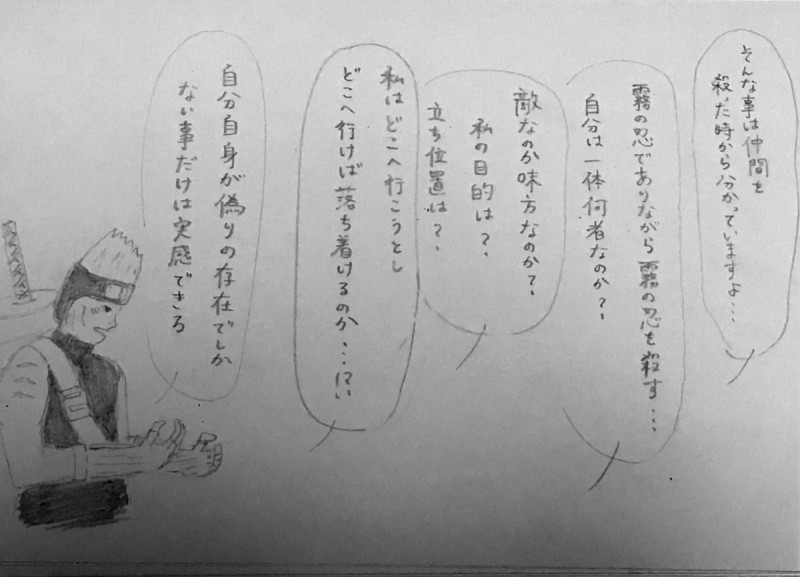 そんな事は仲間を
殺った時から分かっていますよ…
霧の忍でありながら霧の忍を殺す…
自分は一体何者なのか？、
敵なのか味方なのか？、
私の目的は？、
立ち位置は？、
私はどこへ行こうとし
どこへ行けば落ち着けるのか…!?、
自分自身が偽りの存在でしか
ない事だけは実感できる